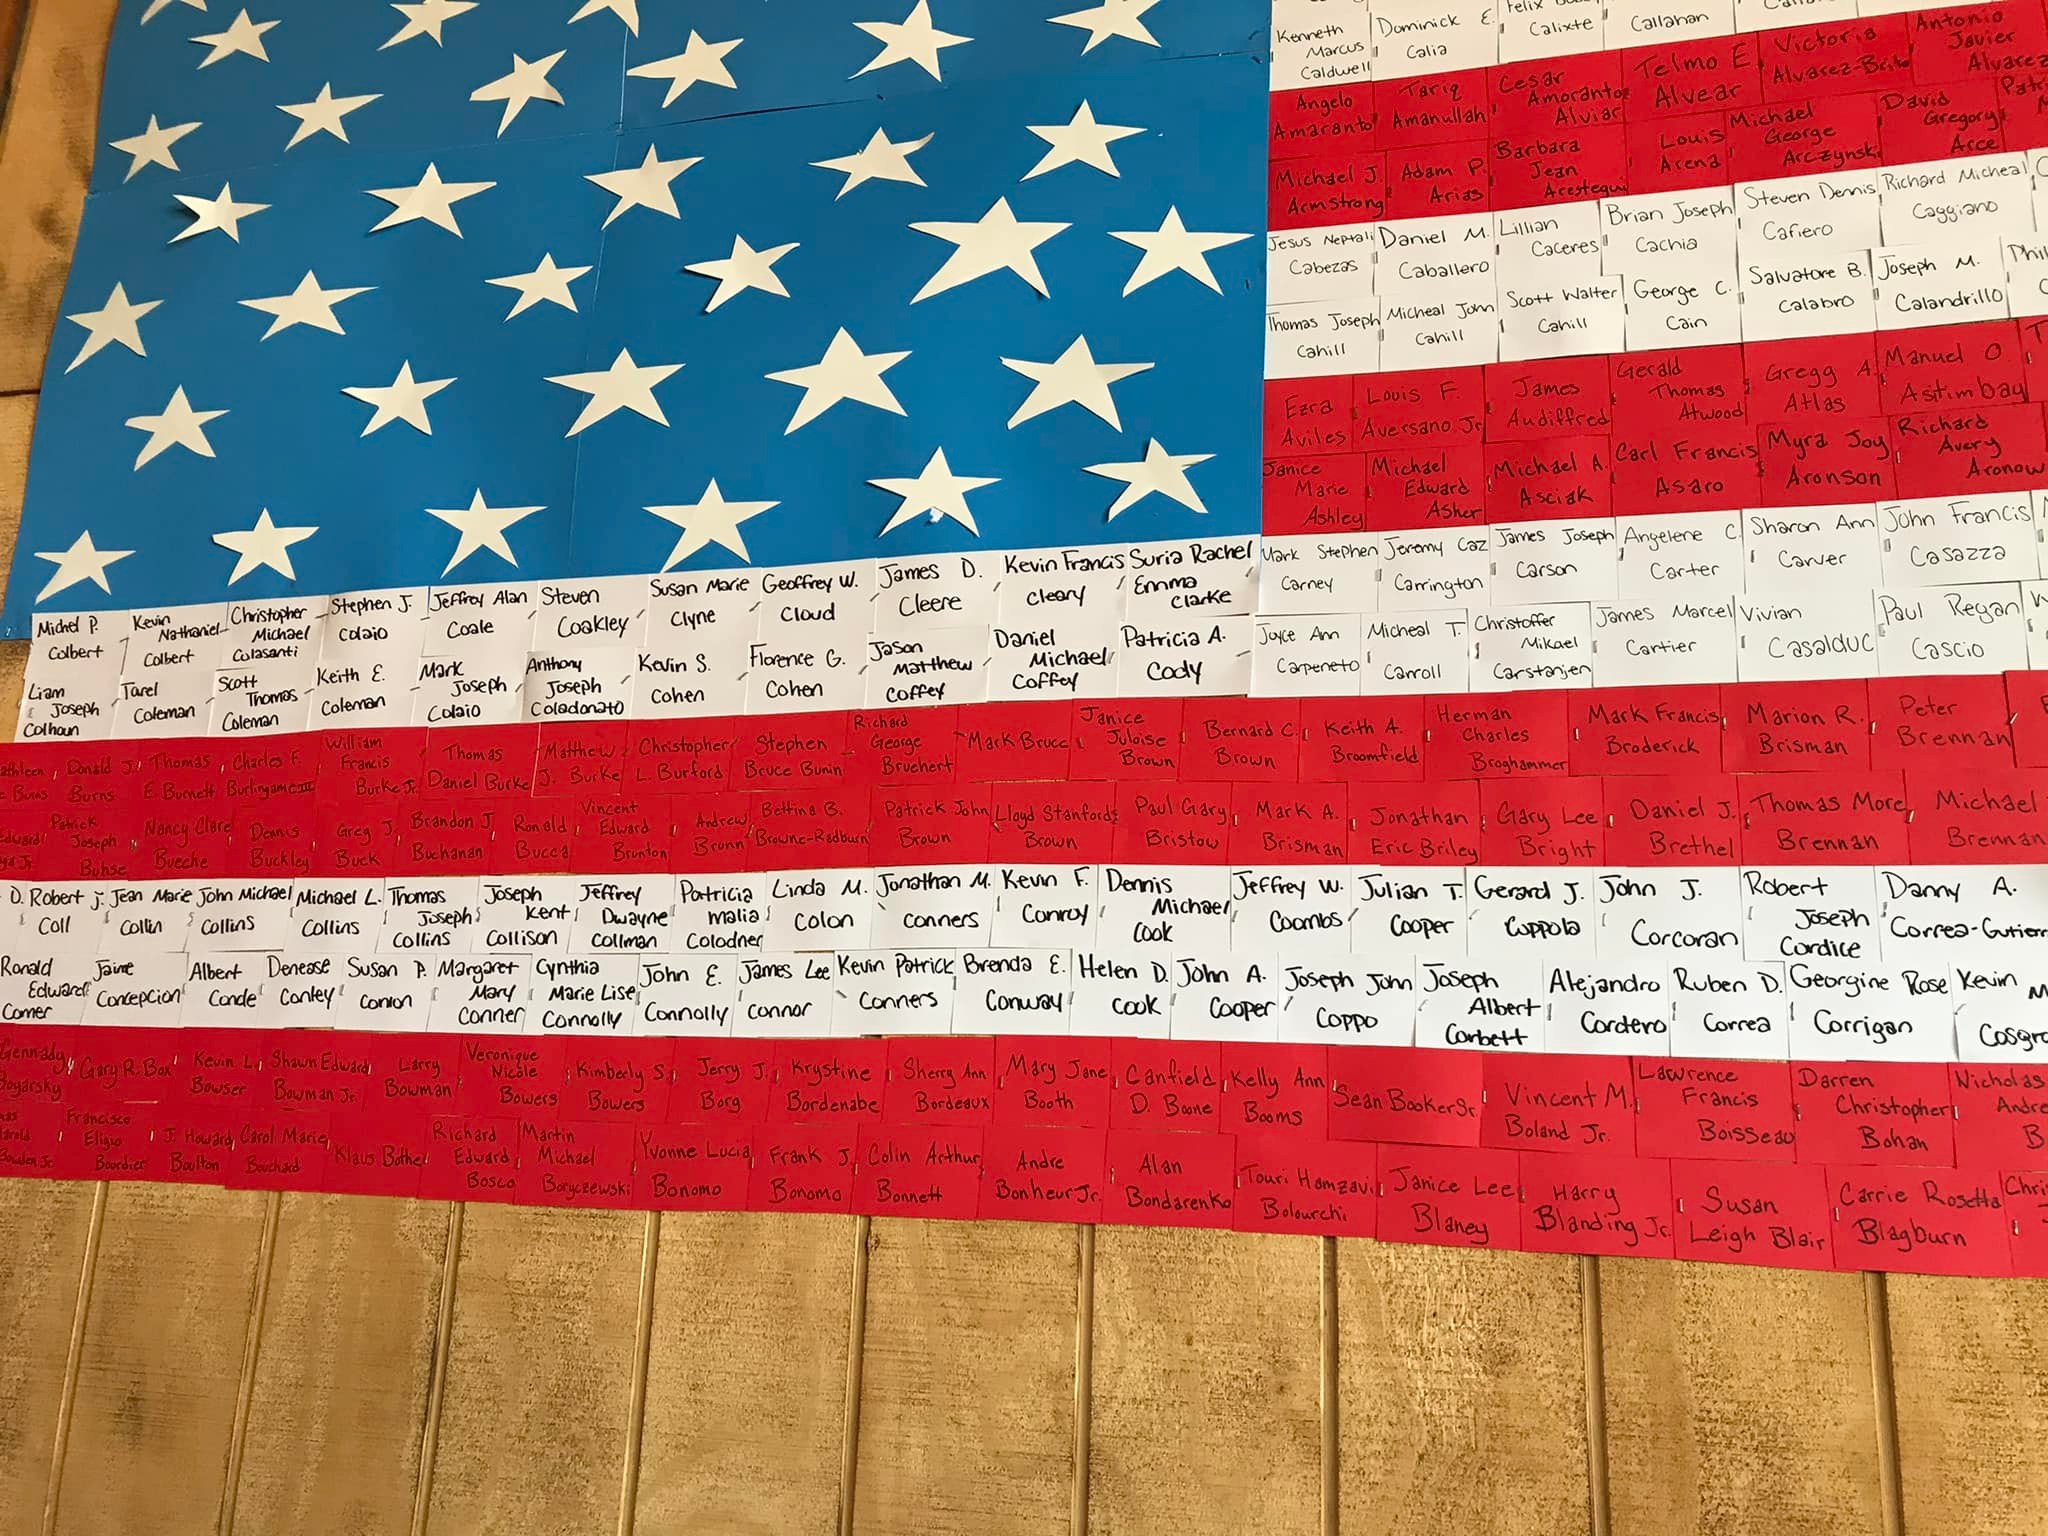 Kenneth Marcus Caldwell Dominick E. Calia Felix Calixte Callahan
Angelo Amaranto Tariq Amanullah Cesar Amoranto Alviar Telmo E Alvear Victoria Alvarez-Brito Antonio Javier Alvarez
Michael J. Armstrong Adam P. Arias Barbara Jean Arestegui Louis Arena Michael George Arczynski David Gregory Arce
Jesus Neptali Cabezas Daniel M. Caballero Lillian Caceres Brian Joseph Cachia Steven Dennis Cafiero Richard Micheal Caggiano
Thomas Joseph Cahill Micheal John Cahill Scott Walter Cahill George C. Cain Salvatore B. Calabro Joseph M. Calandrillo
Ezra Aviles Louis F. Aversano Jr James Audiffred Gerald Thomas Atwood Gregg A. Atlas Manuel O. Asitimbay
Janice Marie Ashley Michael Edward Asher Michael A. Asciak Carl Francis Asaro Myra Joy Aronson Richard Avery Aronow
Mark Stephen Carney Jeremy Caz Carrington James Joseph Carson Angelene C. Carter Sharon Ann Carver John Francis Casazza
Joyce Ann Carpeneto Micheal T. Carroll Christoffer Mikael Carstanjen James Marcel Cartier Vivian Casalduc Paul Regan Cascio
Michel P. Colbert Kevin Nathaniel Colbert Christopher Michael Colasanti Stephen J. Colaio Jeffrey Alan Coale Steven Coakley Susan Marie Clyne Geoffrey W. Cloud James D. Cleere Kevin Francis Cleary Suria Rachel Emma Clarke
Liam Joseph Colhoun Tarel Coleman Scott Thomas Coleman Keith E. Coleman Mark Joseph Colaio Anthony Joseph Coladonato Kevin S. Cohen Florence G. Cohen Jason Matthew Coffey Daniel Michael Coffey Patricia A. Cody
Burns Donald J. Burns Thomas E. Burnett Charles F. Burlingame III William Francis Burke Jr. Thomas Daniel Burke Matthew J. Burke Christopher L. Burford Stephen Bruce Bunin Richard George Bruehert Mark Bruce Janice Juloise Brown Bernard C. Brown Keith A. Broomfield Herman Charles Broghammer Mark Francis Broderick Marion R. Brisman Peter Brennan
Patrick Joseph Buhse Nancy Clare Bueche Dennis Buckley Greg J. Buck Brandon J. Buchanan Ronald Bucca Vincent Edward Brunton Andrew Brunn Bettina B. Browne-Radburn Patrick John Brown Lloyd Stanford Brown Paul Gary Bristow Mark A. Brisman Jonathan Eric Briley Gary Lee Bright Daniel J. Brethel Thomas More Brennan Michael Brennan
D. Robert j. Coll Jean Marie Collin John Michael Collins Michael L. Collins Thomas Joseph Collins Joseph Kent Collison Jeffrey Dwayne Collman Patricia Malia Colodner Linda M. Colon Jonathan M. Conners Kevin F. Conroy Dennis Michael Cook Jeffrey W. Coombs Julian T. Cooper Gerard J. Coppola John J. Corcoran Robert Joseph Cordice Danny A. Correa-Gutierr
Ronald Edward Comer Jaime Concepcion Albert Conde Denease Conley Susan P. Conlon Margaret Mary Conner Cynthia Marie Lise Connolly John E. Connolly James Lee Connor Kevin Patrick Conners Brenda E. Conway Helen D. Cook John A. Cooper Joseph John Coppo Joseph Albert Corbett Alejandro Cordero Ruben D. Correa Georgine Rose Corrigan Kevin M Cosgro
Gennady Boyarsky Gary R. Box Kevin L. Bowser Shawn Edward Bowman Jr. Larry Bowman Veronique Nicole Bowers Kimberly S. Bowers Jerry J. Borg Krystine Bordenabe Sherry Ann Bordeaux Mary Jane Booth Canfield D. Boone Kelly Ann Booms Sean Booker Sr. Vincent M. Boland Jr. Lawrence Francis Boisseau Darren Christopher Bohan Nicholas Andre B
Bowden Jr. Francisco Eligio Bourdier J. Howard Boulton Carol Marie Bouchard Klaus Bothe Richard Edward Bosco Martin Michael Boryczewski Yvonne Lucia Bonomo Frank J. Bonomo Colin Arthur Bonnett Andre Bonheur Jr. Alan Bondarenko Touri Hamzavi Bolourchi Janice Lee Blaney Harry Blanding Jr. Susan Leigh Blair Carrie Rosetta Blagburn